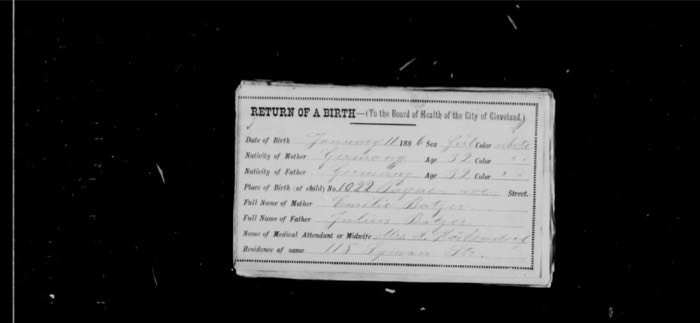 RETURN OF A BIRTH—(To the Board of Health of the City of Cleveland.)
Date of Birth January 11 1886 Sex Girl Color white
Nativity of Mother Germany Age 32 Color " "
Nativity of Father Germany Age 32 Color " "
Place of Birth (of child) No. 1022 Payne ave Street.
Full Name of Mother Emilie
Full Name of Father Julius
Name of Medical Attendant or Midwife Mrs.
Residence of same 115 Lyman St.